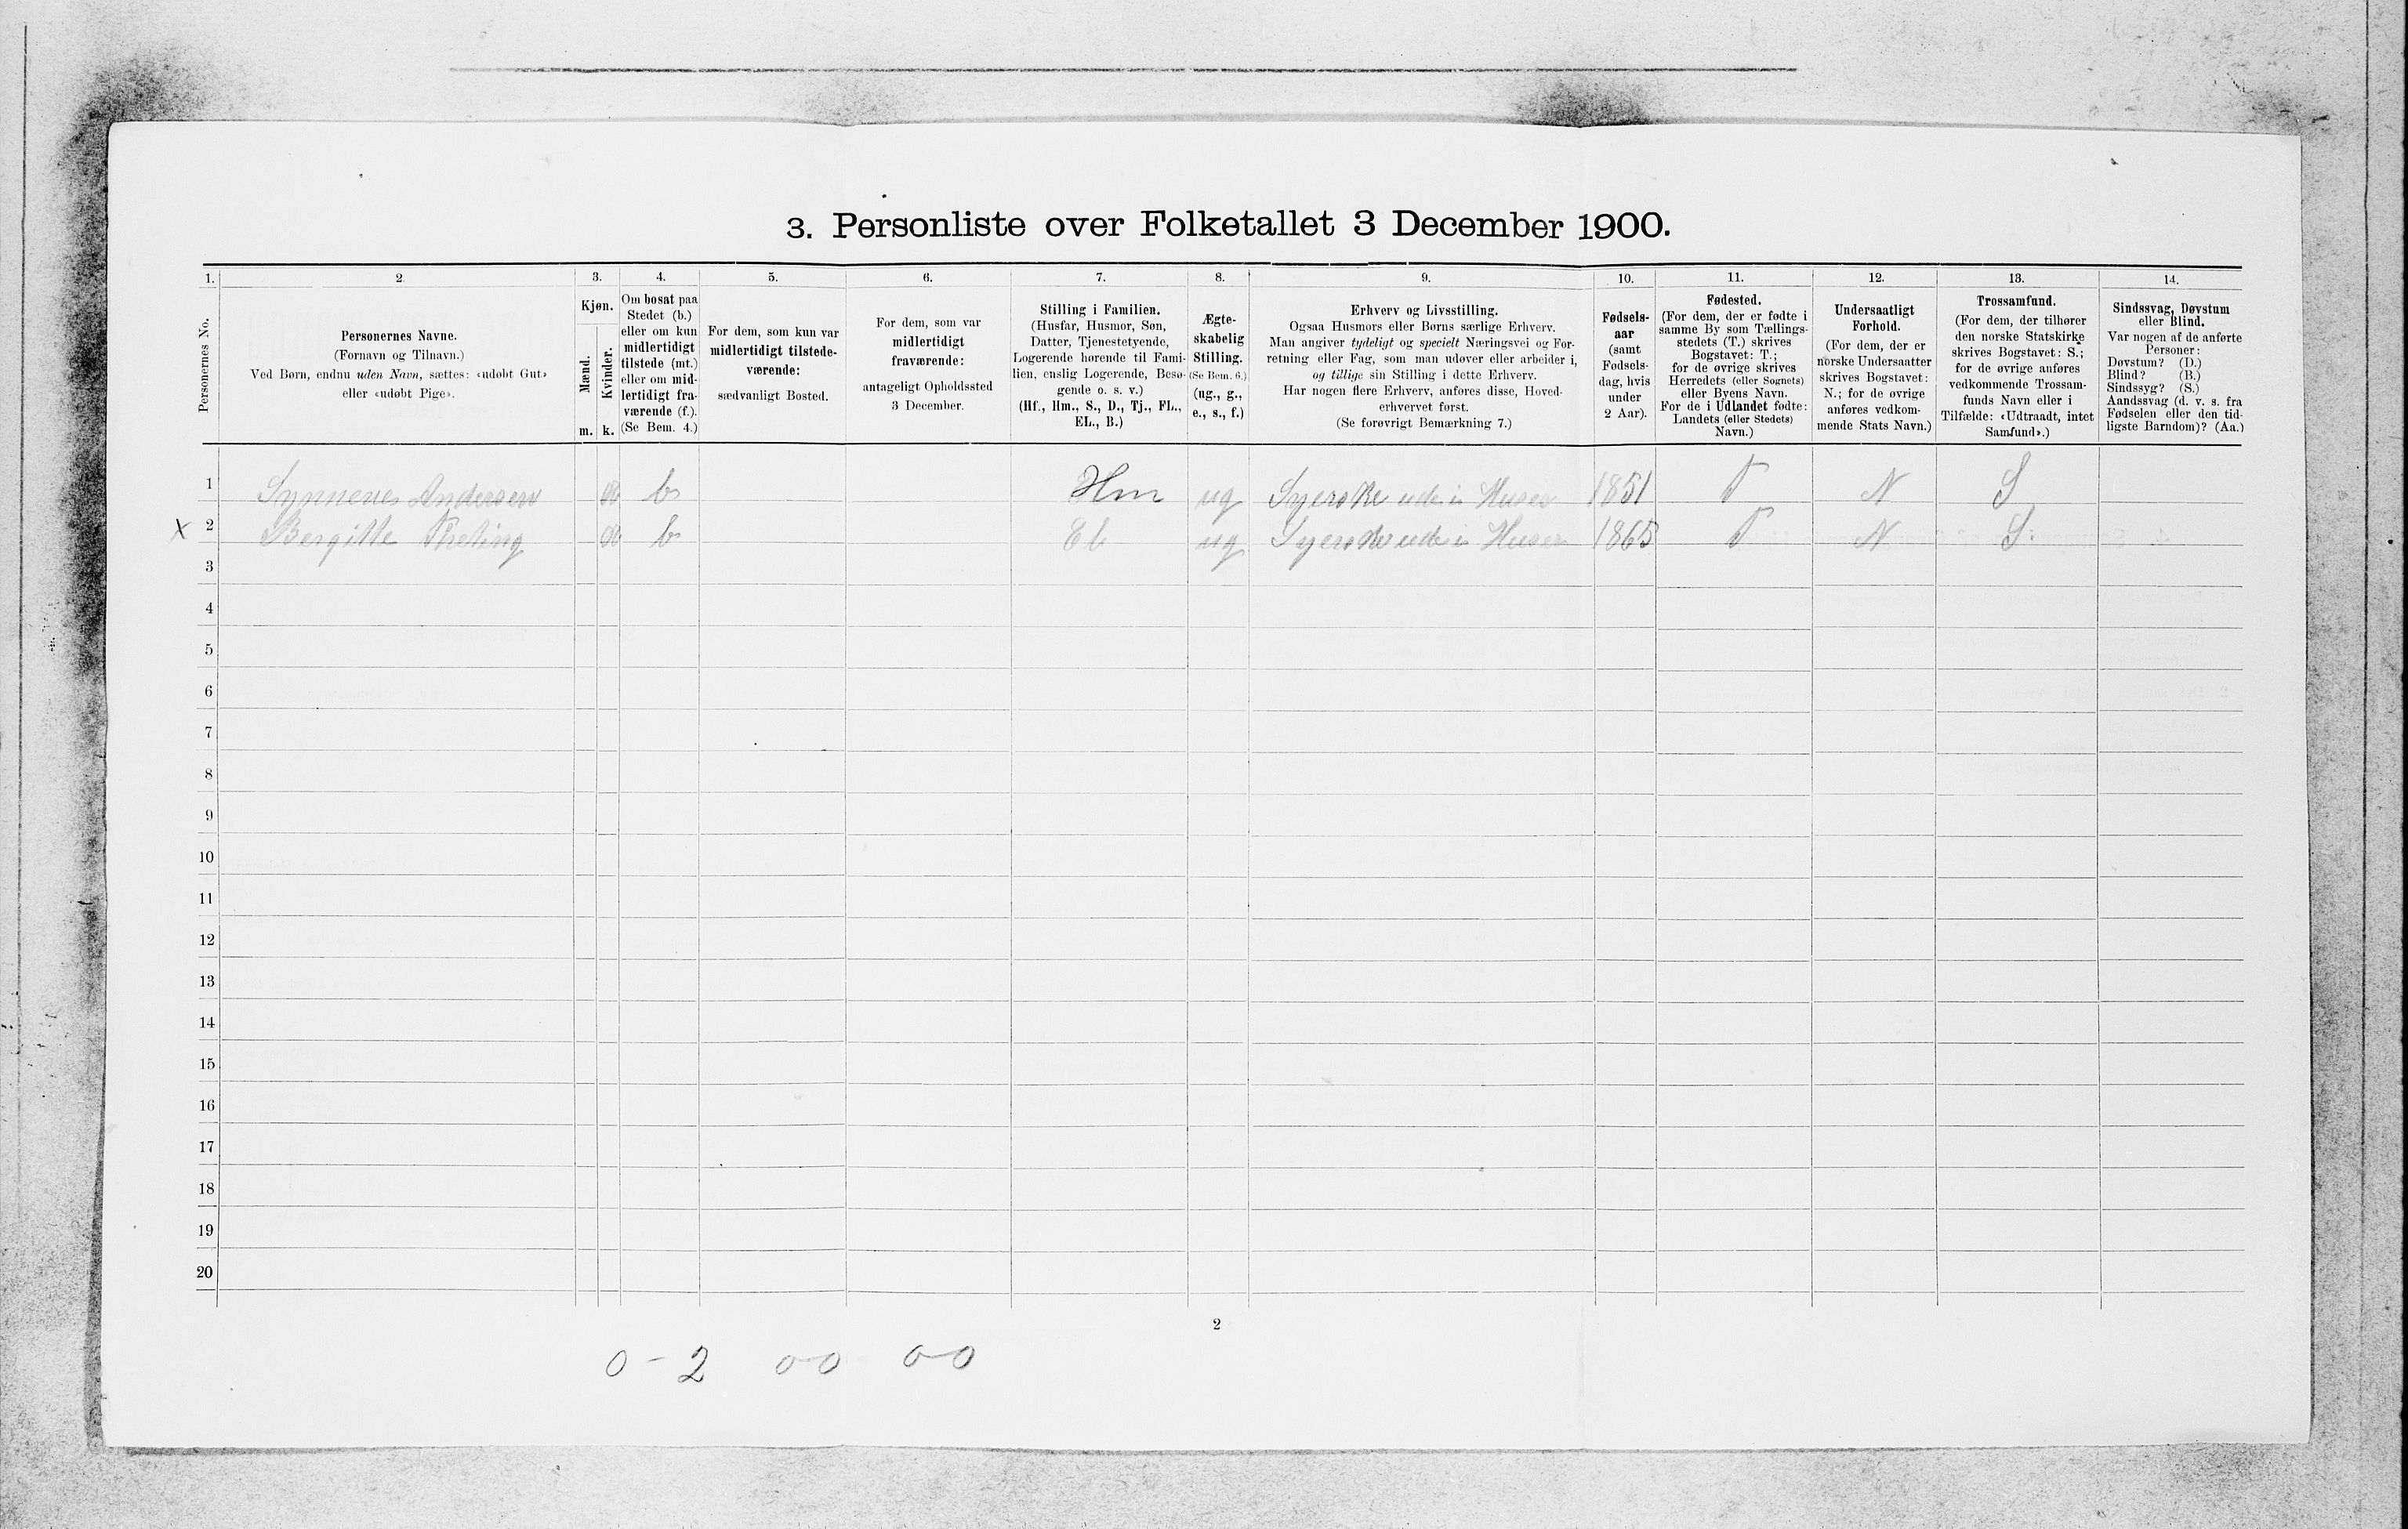 3. Personliste over Folketallet 3 December 1900.
1. 2. 3. 4. 5. 6. 7. 8. 9. 10. 11. 12. 13. 14.
Personernes No.
Personernes Navne.
(Fornavn og Tilnavn.)
Ved Børn, endnu uden Navn, sættes: «udøbt Gut»
eller «udøbt Pige».
Kjøn.
Mænd.
Kvinder.
m. k.
Om bosat paa
Stedet (b.)
eller om kun
midlertidigt
tilstede (mt.)
eller om mid-
lertidigt fra-
værende (f.).
(Se Bem. 4.)
For dem, som kun var
midlertidigt tilstede-
værende:
sædvanligt Bosted.
For dem, som var
midlertidigt
fraværende:
antageligt Opholdssted
3 December.
Stilling i Familien.
(Husfar, Husmor, Søn,
Datter, Tjenestetyende,
Logerende hørende til Fami-
lien, enslig Logerende, Besø-
gende o. s. v.)
(Hf., Hm., S., D., Tj., FL.,
EL., B.)
Ægte-
skabelig
Stilling.
(Se Bem. 6.)
(ug., g.,
e., s., f.)
Erhverv og Livsstilling.
Ogsaa Husmors eller Børns særlige Erhverv.
Man angiver tydeligt og specielt Næringsvei og For-
retning eller Fag, som man udøver eller arbeider i,
og tillige sin Stilling i dette Erhverv.
Har nogen flere Erhverv, anføres disse, Hoved-
erhvervet først.
(Se forøvrigt Bemærkning 7.)
Fødsels-
aar
(samt
Fødsels-
dag, hvis
under
2 Aar).
Fødested.
(For dem, der er fødte i
samme By som Tællings-
stedets (T.) skrives
Bogstavet: T.;
for de øvrige skrives
Herredets (eller Sognets)
eller Byens Navn.
For de i Udlandet fødte:
Landets (eller Stedets)
Navn.)
Undersaatligt
Forhold.
(For dem, der er
norske Undersaatter
skrives Bogstavet:
N.; for de øvrige
anføres vedkom-
mende Stats Navn.)
Trossamfund.
(For dem, der tilhører
den norske Statskirke
skrives Bogstavet: S.;
for de øvrige anføres
vedkommende Trossam-
funds Navn eller i
Tilfælde: «Udtraadt, intet
Samfund».)
Sindssvag, Døvstum
eller Blind.
Var nogen af de anførte
Personer:
Døvstum? (D.)
Blind? (B.)
Sindssyg? (S.)
Aandssvag (d. v. s. fra
Fødselen eller den tid-
ligste Barndom)? (Aa.)
1 Andersen b Hm ug Syerske ude i Huser 1851 T N S
x 2 Bergitte b El ug Syerske ude i Huser 1865 T N S
3
4
5
6
7
8
9
10
11
12
13
14
15
16
17
18
19
20
2
0 - 2 0-0 0-0